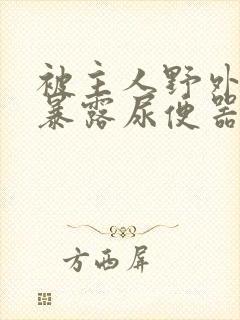 被主人野外
暴露尿便器
方西屏